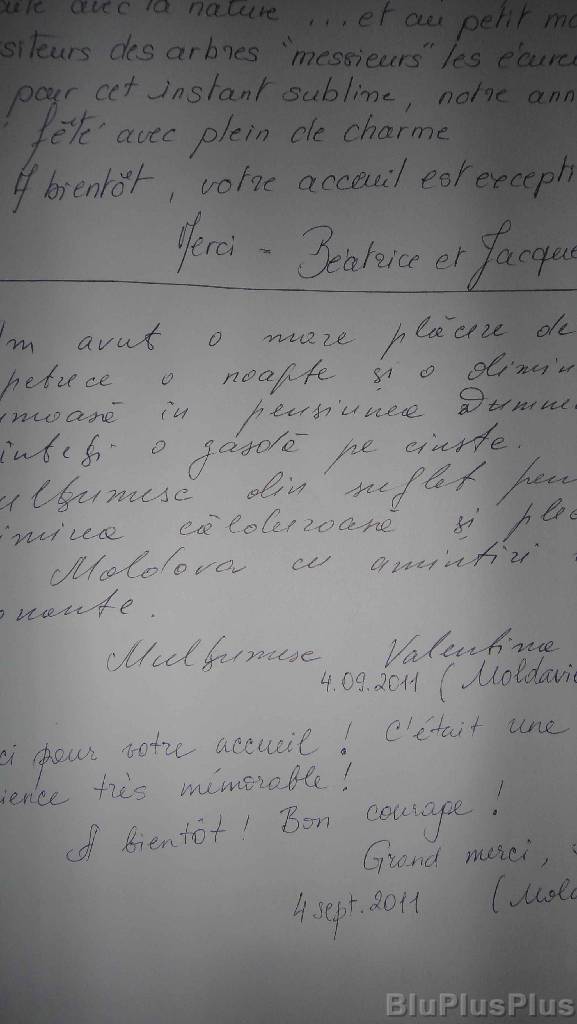 avec la nature ... et au petit
des arbres "messieurs" les
pour cet instant sublime, notre
fêté avec plein de charme
A bientôt, votre accueil est
Merci - Béatrice et Jacque
avut o mare plăcere de
petrece o noapte și o
în pensiunea
o gasdă pe cinste.
din suflet
călduroasă și
Moldova cu amintiri
Mulțumesc Valentina
4.09.2011 (Moldavie
pour votre accueil ! C'était une
ience très mémorable !
A bientôt ! Bon courage !
Grand merci,
4 sept. 2011 (Mold
BluPlusPlus